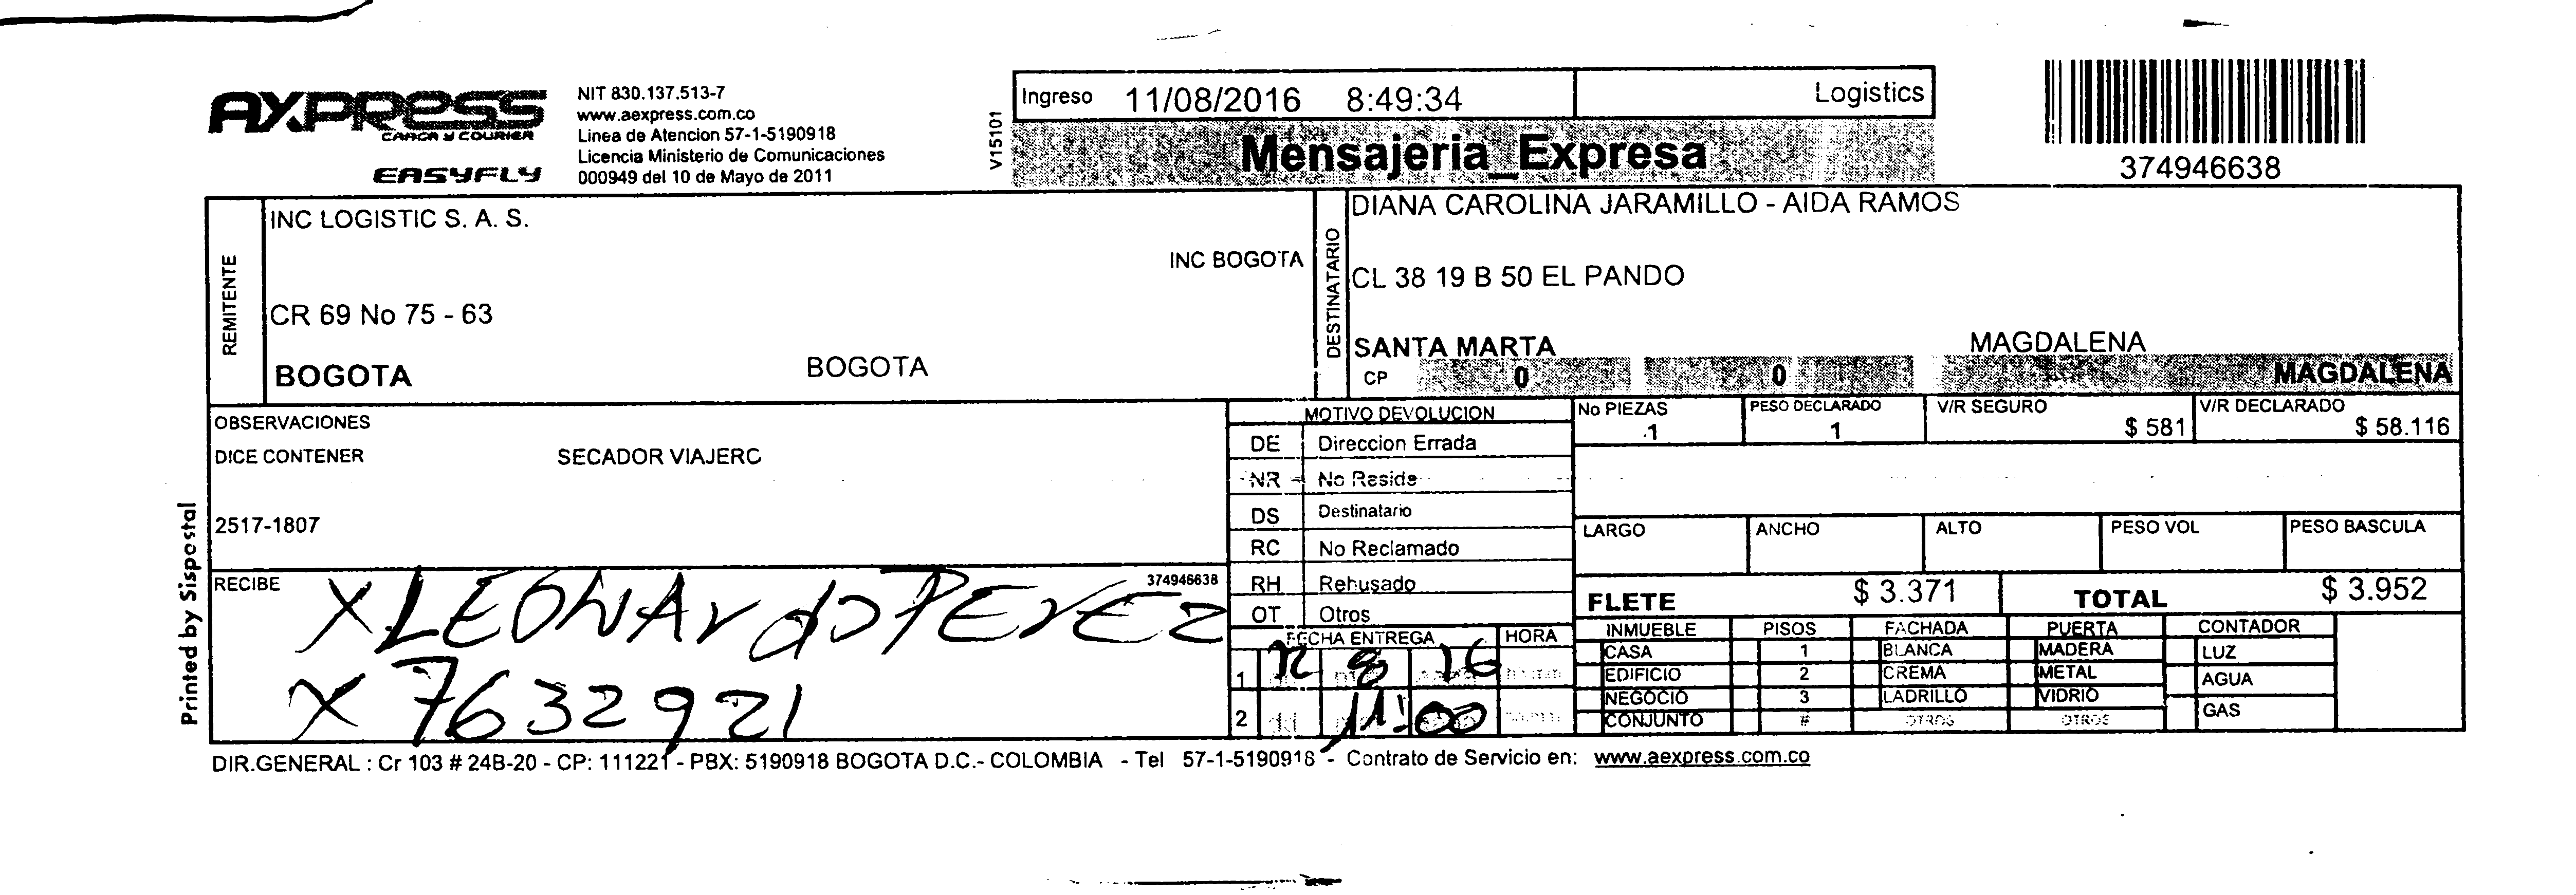 AXPRESS
CARGA Y COURIER
EASYFLY
NIT 830.137.513-7
www.aexpress.com.co
Linea de Atencion 57-1-5190918
Licencia Ministerio de Comunicaciones
000949 del 10 de Mayo de 2011
V15101
Ingreso 11/08/2016 8:49:34 Logistics
Mensajeria_Expresa
374946638
REMITENTE
INC LOGISTIC S. A. S.
INC BOGOTA
CR 69 No 75 - 63
BOGOTA BOGOTA
DESTINATARIO
DIANA CAROLINA JARAMILLO - AIDA RAMOS
CL 38 19 B 50 EL PANDO
SANTA MARTA MAGDALENA
CP 0 0 MAGDALENA
OBSERVACIONES
DICE CONTENER SECADOR VIAJERC
2517-1807
MOTIVO DEVOLUCION
DE Direccion Errada
NR No Reside
DS Destinatario
RC No Reclamado
RH Rehusado
OT Otros
No PIEZAS PESO DECLARADO V/R SEGURO V/R DECLARADO
1 1 $ 581 $ 58.116
LARGO ANCHO ALTO PESO VOL PESO BASCULA
FLETE $ 3.371 TOTAL $ 3.952
RECIBE 374946638
X LEONArdO PErEZ
X 7632921
FECHA ENTREGA HORA
1 12 8 16
2 11:00
INMUEBLE PISOS FACHADA PUERTA CONTADOR
CASA 1 BLANCA MADERA LUZ
EDIFICIO 2 CREMA METAL AGUA
NEGOCIO 3 LADRILLO VIDRIO GAS
CONJUNTO # OTROS OTROS
Printed by Sispostal
DIR.GENERAL : Cr 103 # 24B-20 - CP: 111221 - PBX: 5190918 BOGOTA D.C.- COLOMBIA - Tel 57-1-5190918 - Contrato de Servicio en: www.aexpress.com.co